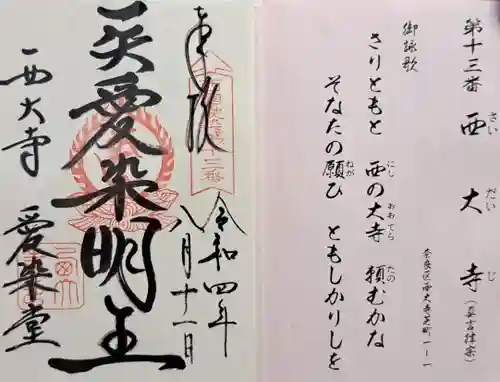 第十三番 西大寺 (真言律宗)
さい だい じ
奈良市西大寺芝町1-1
御詠歌
さりともと 西の大寺 頼むかな
にし おおてら たの
そなたの願ひ ともしかりしを
ねが
奉拝
令和四年
八月十一日
愛染明王
西大寺 愛染堂